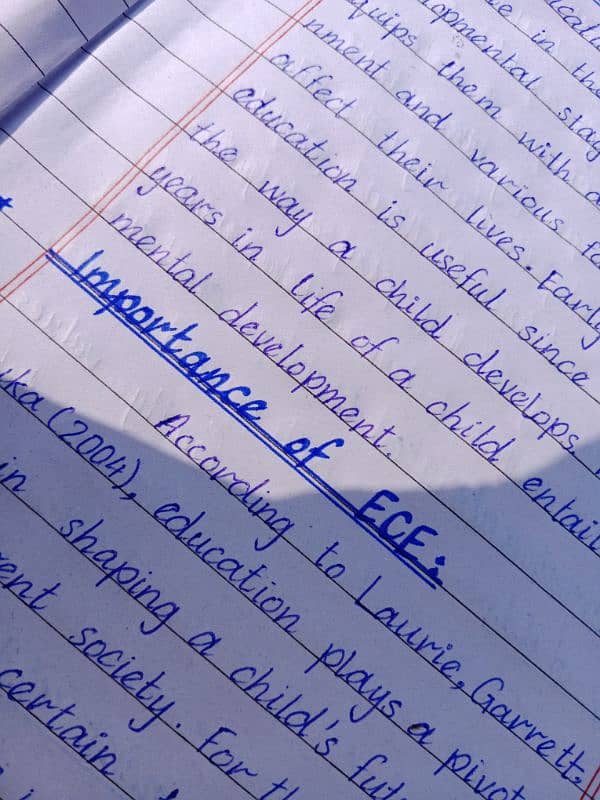 e in the
opmental stag
quips them with a
nment and various fa
affect their lives. Early
education is useful since
the way a child develops,
years in life of a child entail
mental development.
Importance of ECE:
According to Laurie, Garrett,
ka (2004), education plays a pivot
in shaping a child's fut
rent society. For th
certain